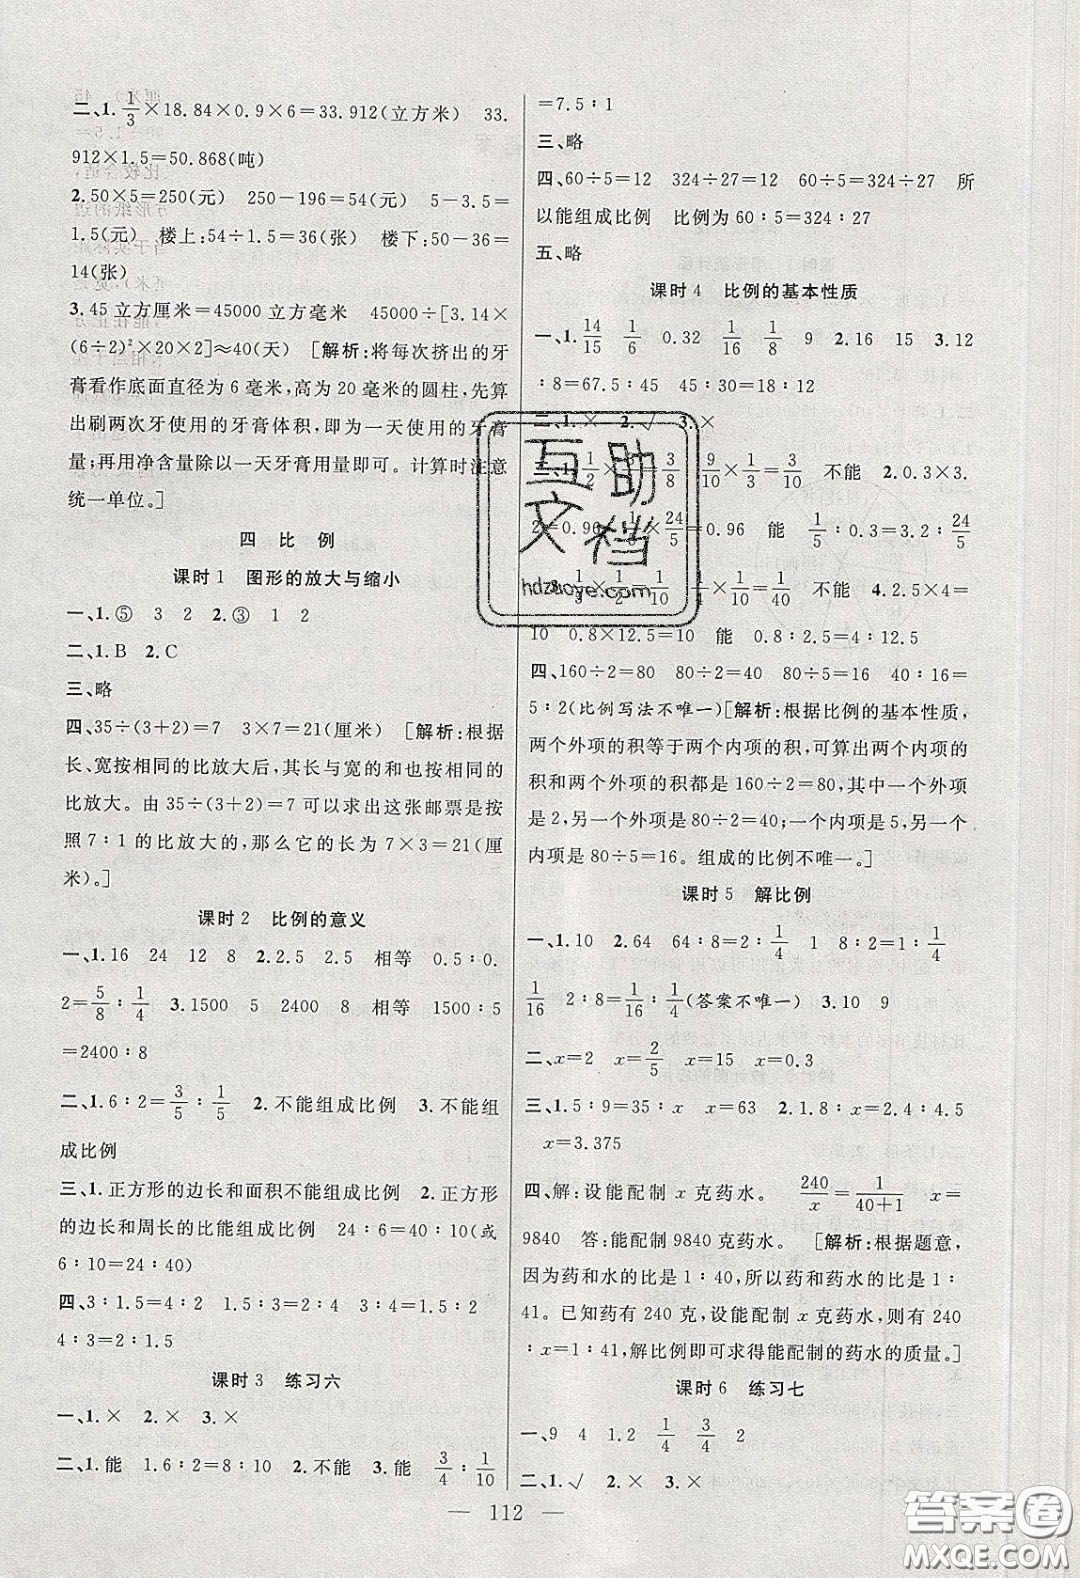 二、1. 1/3×18.84×0.9×6=33.912(立方米) 33.
912×1.5=50.868(吨)
2.50×5=250(元) 250-196=54(元) 5-3.5=
1.5(元) 楼上:54÷1.5=36(张) 楼下:50-36=
14(张)
3.45立方厘米=45000立方毫米 45000÷[3.14×
(6÷2)²×20×2]≈40(天) [解析:将每次挤出的牙
膏看作底面直径为6毫米,高为20毫米的圆柱,先算
出刷两次牙使用的牙膏体积,即为一天使用的牙膏
量;再用净含量除以一天牙膏用量即可。计算时注意
统一单位。]
四 比 例
课时1 图形的放大与缩小
一、1.⑤ 3 2 2.③ 1 2
二、1.B 2.C
三、略
四、35÷(3+2)=7 3×7=21(厘米) [解析:根据
长、宽按相同的比放大后,其长与宽的和也按相同的
比放大。由35÷(3+2)=7可以求出这张邮票是按
照7∶1的比放大的,那么它的长为7×3=21(厘
米)。]
课时2 比例的意义
一、1.16 24 12 8 2.2.5 2.5 相等 0.5∶0.
2=5/8∶1/4 3.1500 5 2400 8 相等 1500∶5
=2400∶8
二、1.6∶2=3/5∶1/5 2.不能组成比例 3.不能组
成比例
三、1.正方形的边长和面积不能组成比例 2.正方形
的边长和周长的比能组成比例 24∶6=40∶10(或
6∶10=24∶40)
四、3∶1.5=4∶2 1.5∶3=2∶4 3∶4=1.5∶2
4∶3=2∶1.5
课时3 练习六
一、1.× 2.× 3.×
二、1.能 1.6∶2=8∶10 2.不能 3.能 3/4∶1/10
=7.5∶1
三、略
四、60÷5=12 324÷27=12 60÷5=324÷27 所
以能组成比例 比例为60∶5=324∶27
五、略
课时4 比例的基本性质
一、1. 14/15 1/6 0.32 1/16 1/8 9 2.16 15 3.12
∶8=67.5∶45 45∶30=18∶12
二、1.× 2.√ 3.×
三、1. 1/2×  =3/8 9/10×1/3=3/10 不能 2.0.3×3.
2=0.96  ×24/5=0.96 能 1/5∶0.3=3.2∶24/5
 1/5×1/2=1/10  ×1/10=1/40 不能 4.2.5×4=
10 0.8×12.5=10 能 0.8∶2.5=4∶12.5
四、160÷2=80 80÷2=40 80÷5=16 40∶16=
5∶2(比例写法不唯一)[解析:根据比例的基本性质,
两个外项的积等于两个内项的积,可算出两个内项的
积和两个外项的积都是160÷2=80,其中一个外项
是2,另一个外项是80÷2=40;一个内项是5,另一个
内项是80÷5=16。组成的比例不唯一。]
课时5 解比例
一、1.10 2.64 64∶8=2∶1/4 1 8∶2=1∶1/4
1/16 2∶8=1/16∶1/4(答案不唯一) 3.10 9
二、x=2 x=2/5 x=15 x=0.3
三、1.5∶9=35∶x x=63 2.1.8∶x=2.4∶4.5
x=3.375
四、解:设能配制x克药水。 240/x=1/(40+1) x=
9840 答:能配制9840克药水。 [解析:根据题意,
因为药和水的比是1∶40,所以药和药水的比是1∶
41。已知药有240克,设能配制x克药水,则有240
∶x=1∶41,解比例即可求得能配制的药水的质量。]
课时6 练习七
一、9 4 1.2 1/4 3/4 2
二、1.√ 2.× 3.×
— 112 —
互助
文档
hdzuoye.com
答案圈
MXQE.COM